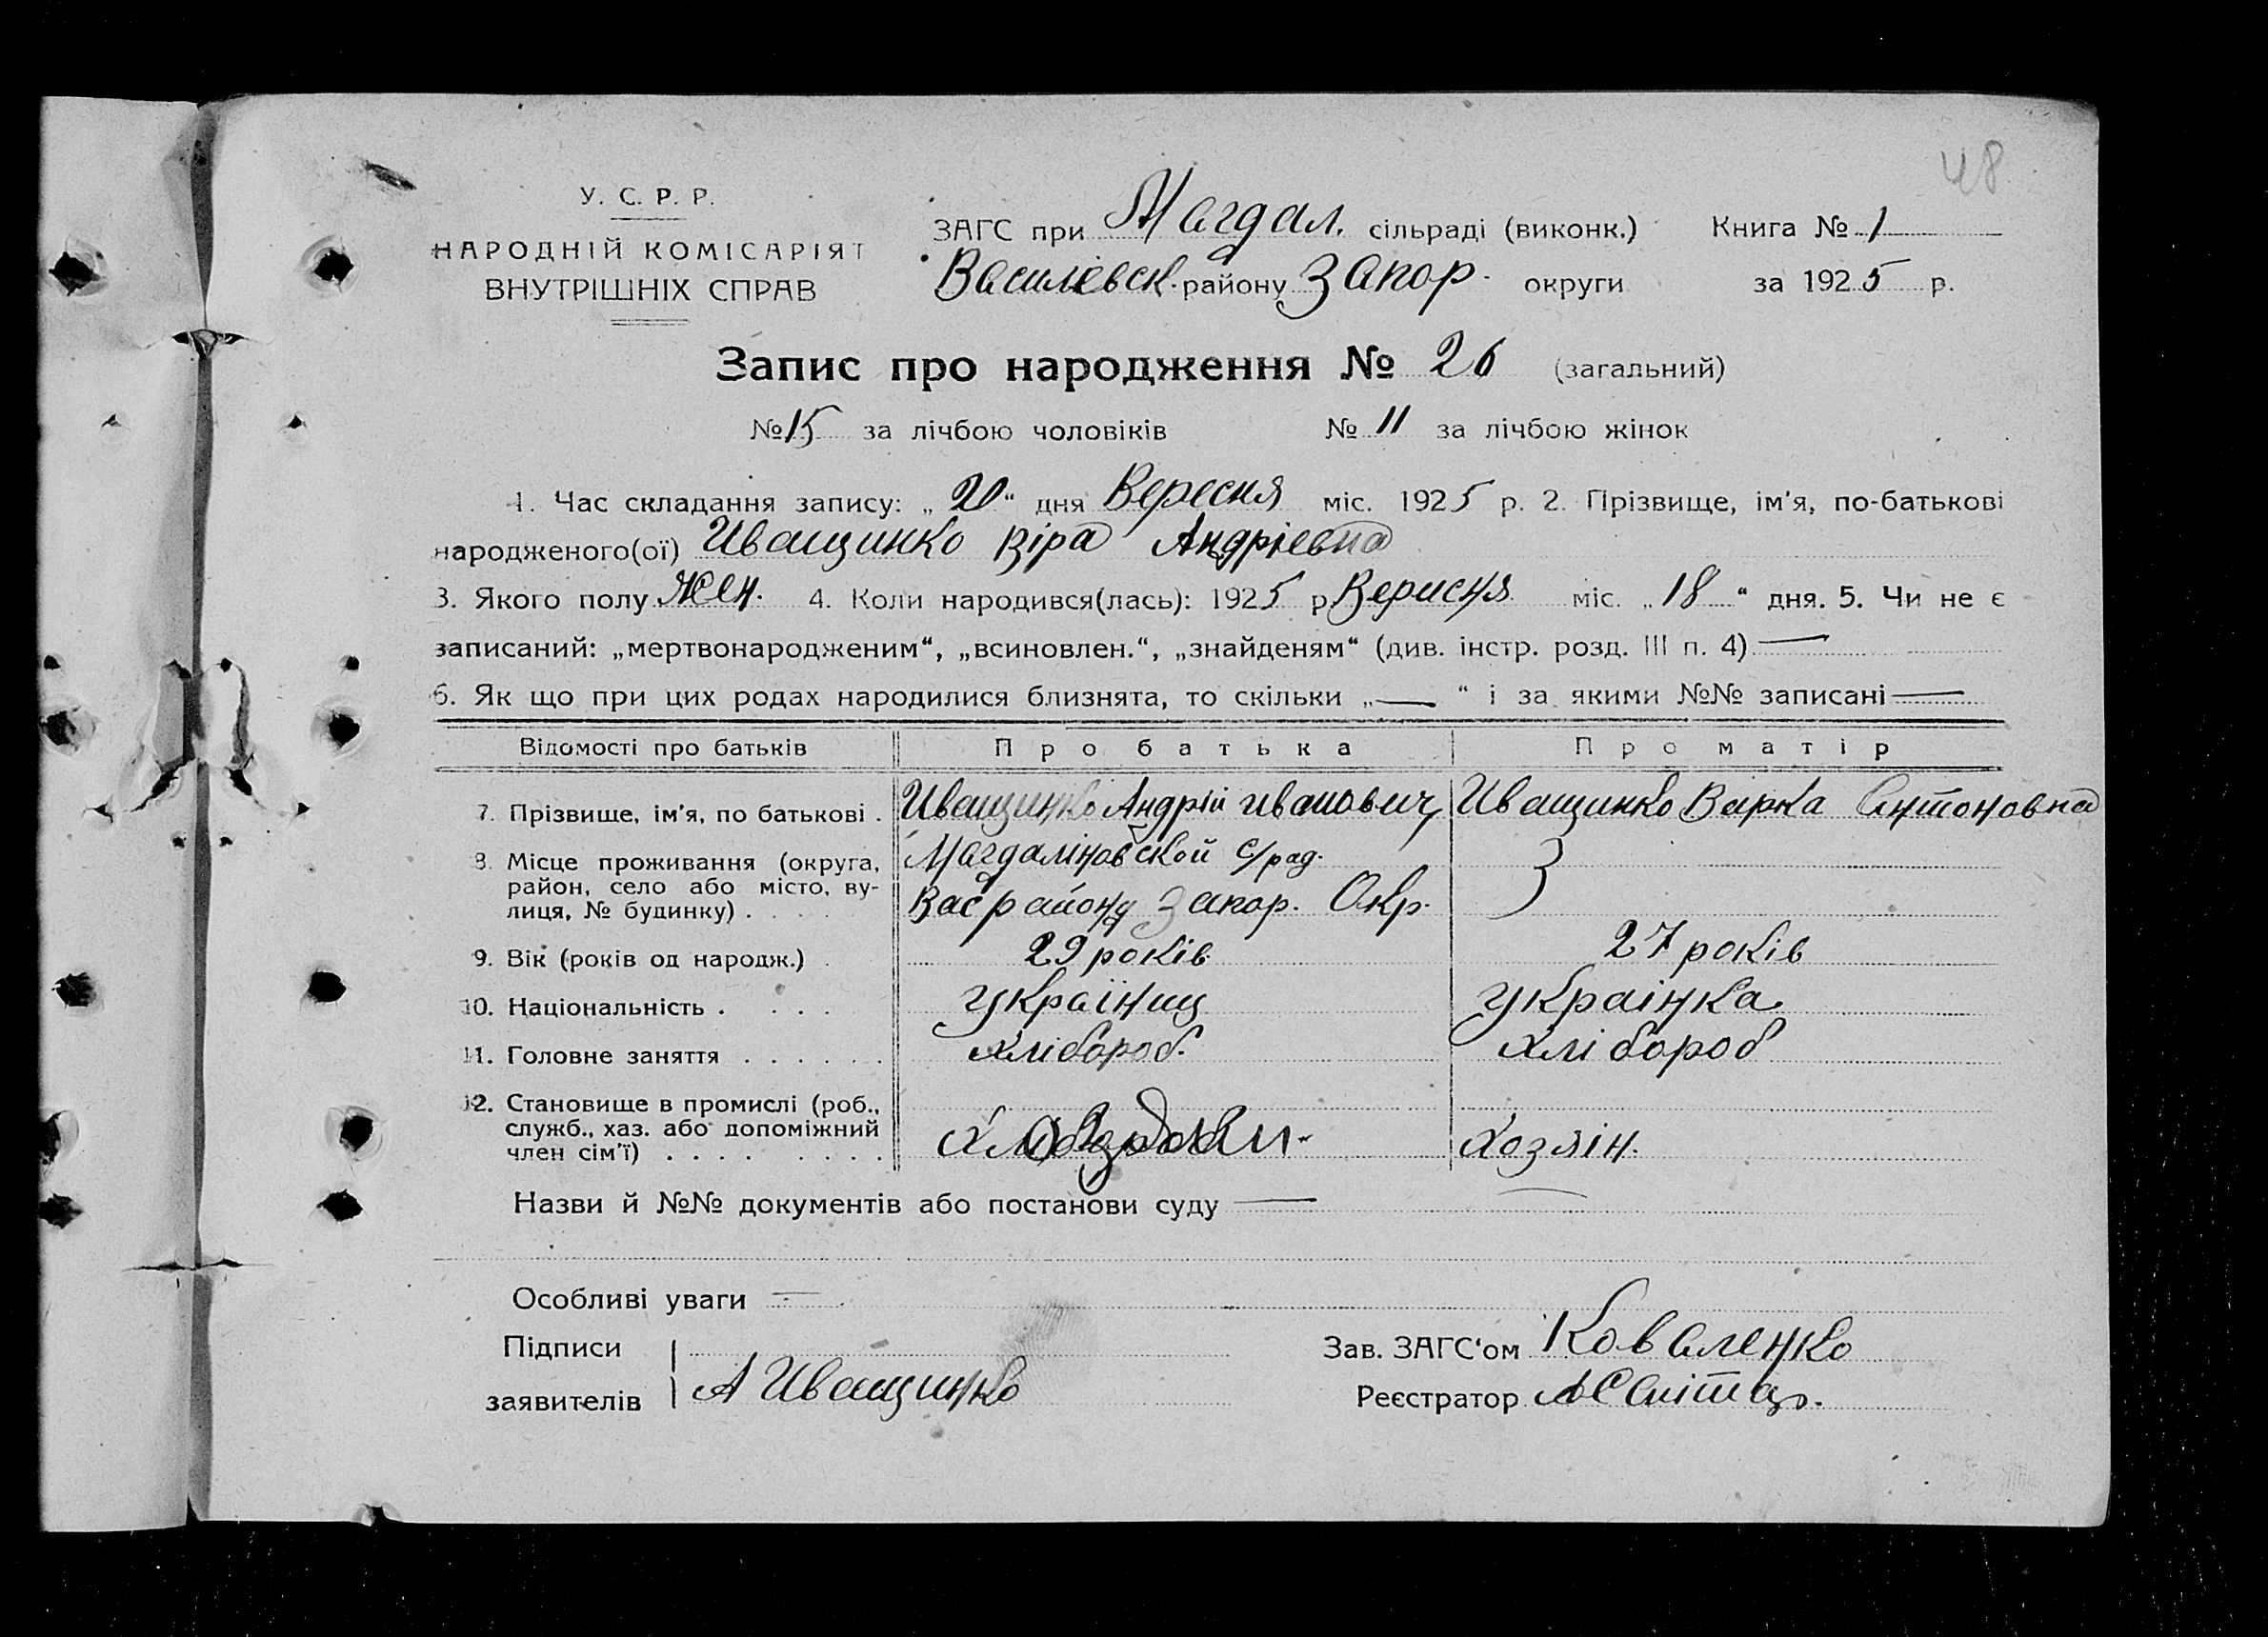 48
У. С. Р. Р.
НАРОДНІЙ КОМІСАРІЯТ
ВНУТРІШНІХ СПРАВ
ЗАГС при Магдал. сільраді (виконк.) Книга № 1
Василівськ. району Запор. округи за 1925 р.
Запис про народження № 26 (загальний)
№ 15 за лічбою чоловіків № 11 за лічбою жінок
1. Час складання запису: „20“ дня Вересня міс. 1925 р. 2. Прізвище, ім'я, по-батькові
народженого(ої) Иващинко Віра Андріевна
3. Якого полу Жен. 4. Коли народився(лась): 1925 р. Верисня міс. „18“ дня. 5. Чи не є
записаний: „мертвонародженим“, „всиновлен.“, „знайденям“ (див. інстр. розд. III п. 4) —
6. Як що при цих родах народилися близнята, то скільки „—“ і за якими №№ записані —
Відомості про батьків Про батька Про матір
7. Прізвище, ім'я, по батькові . Иващинко Андрій Иванович Иващинко Варка Антоновна
8. Місце проживання (округа, район, село або місто, вулиця, № будинку) . . . . Магдаліновской с/рад.
Вас району Запор. Окр.
9. Вік (років од народж.) . 29 років 27 років
10. Національність . . . . українец українка
11. Головне заняття . . . . . . хлібороб. хлібороб
12. Становище в промислі (роб., служб., хаз. або допоміжний член сім'ї) . . . . . . . . хозяін.
Назви й №№ документів або постанови суду —
Особливі уваги —
Підписи
заявителів А Иващинко
Зав. ЗАГС'ом Коваленко
Реєстратор